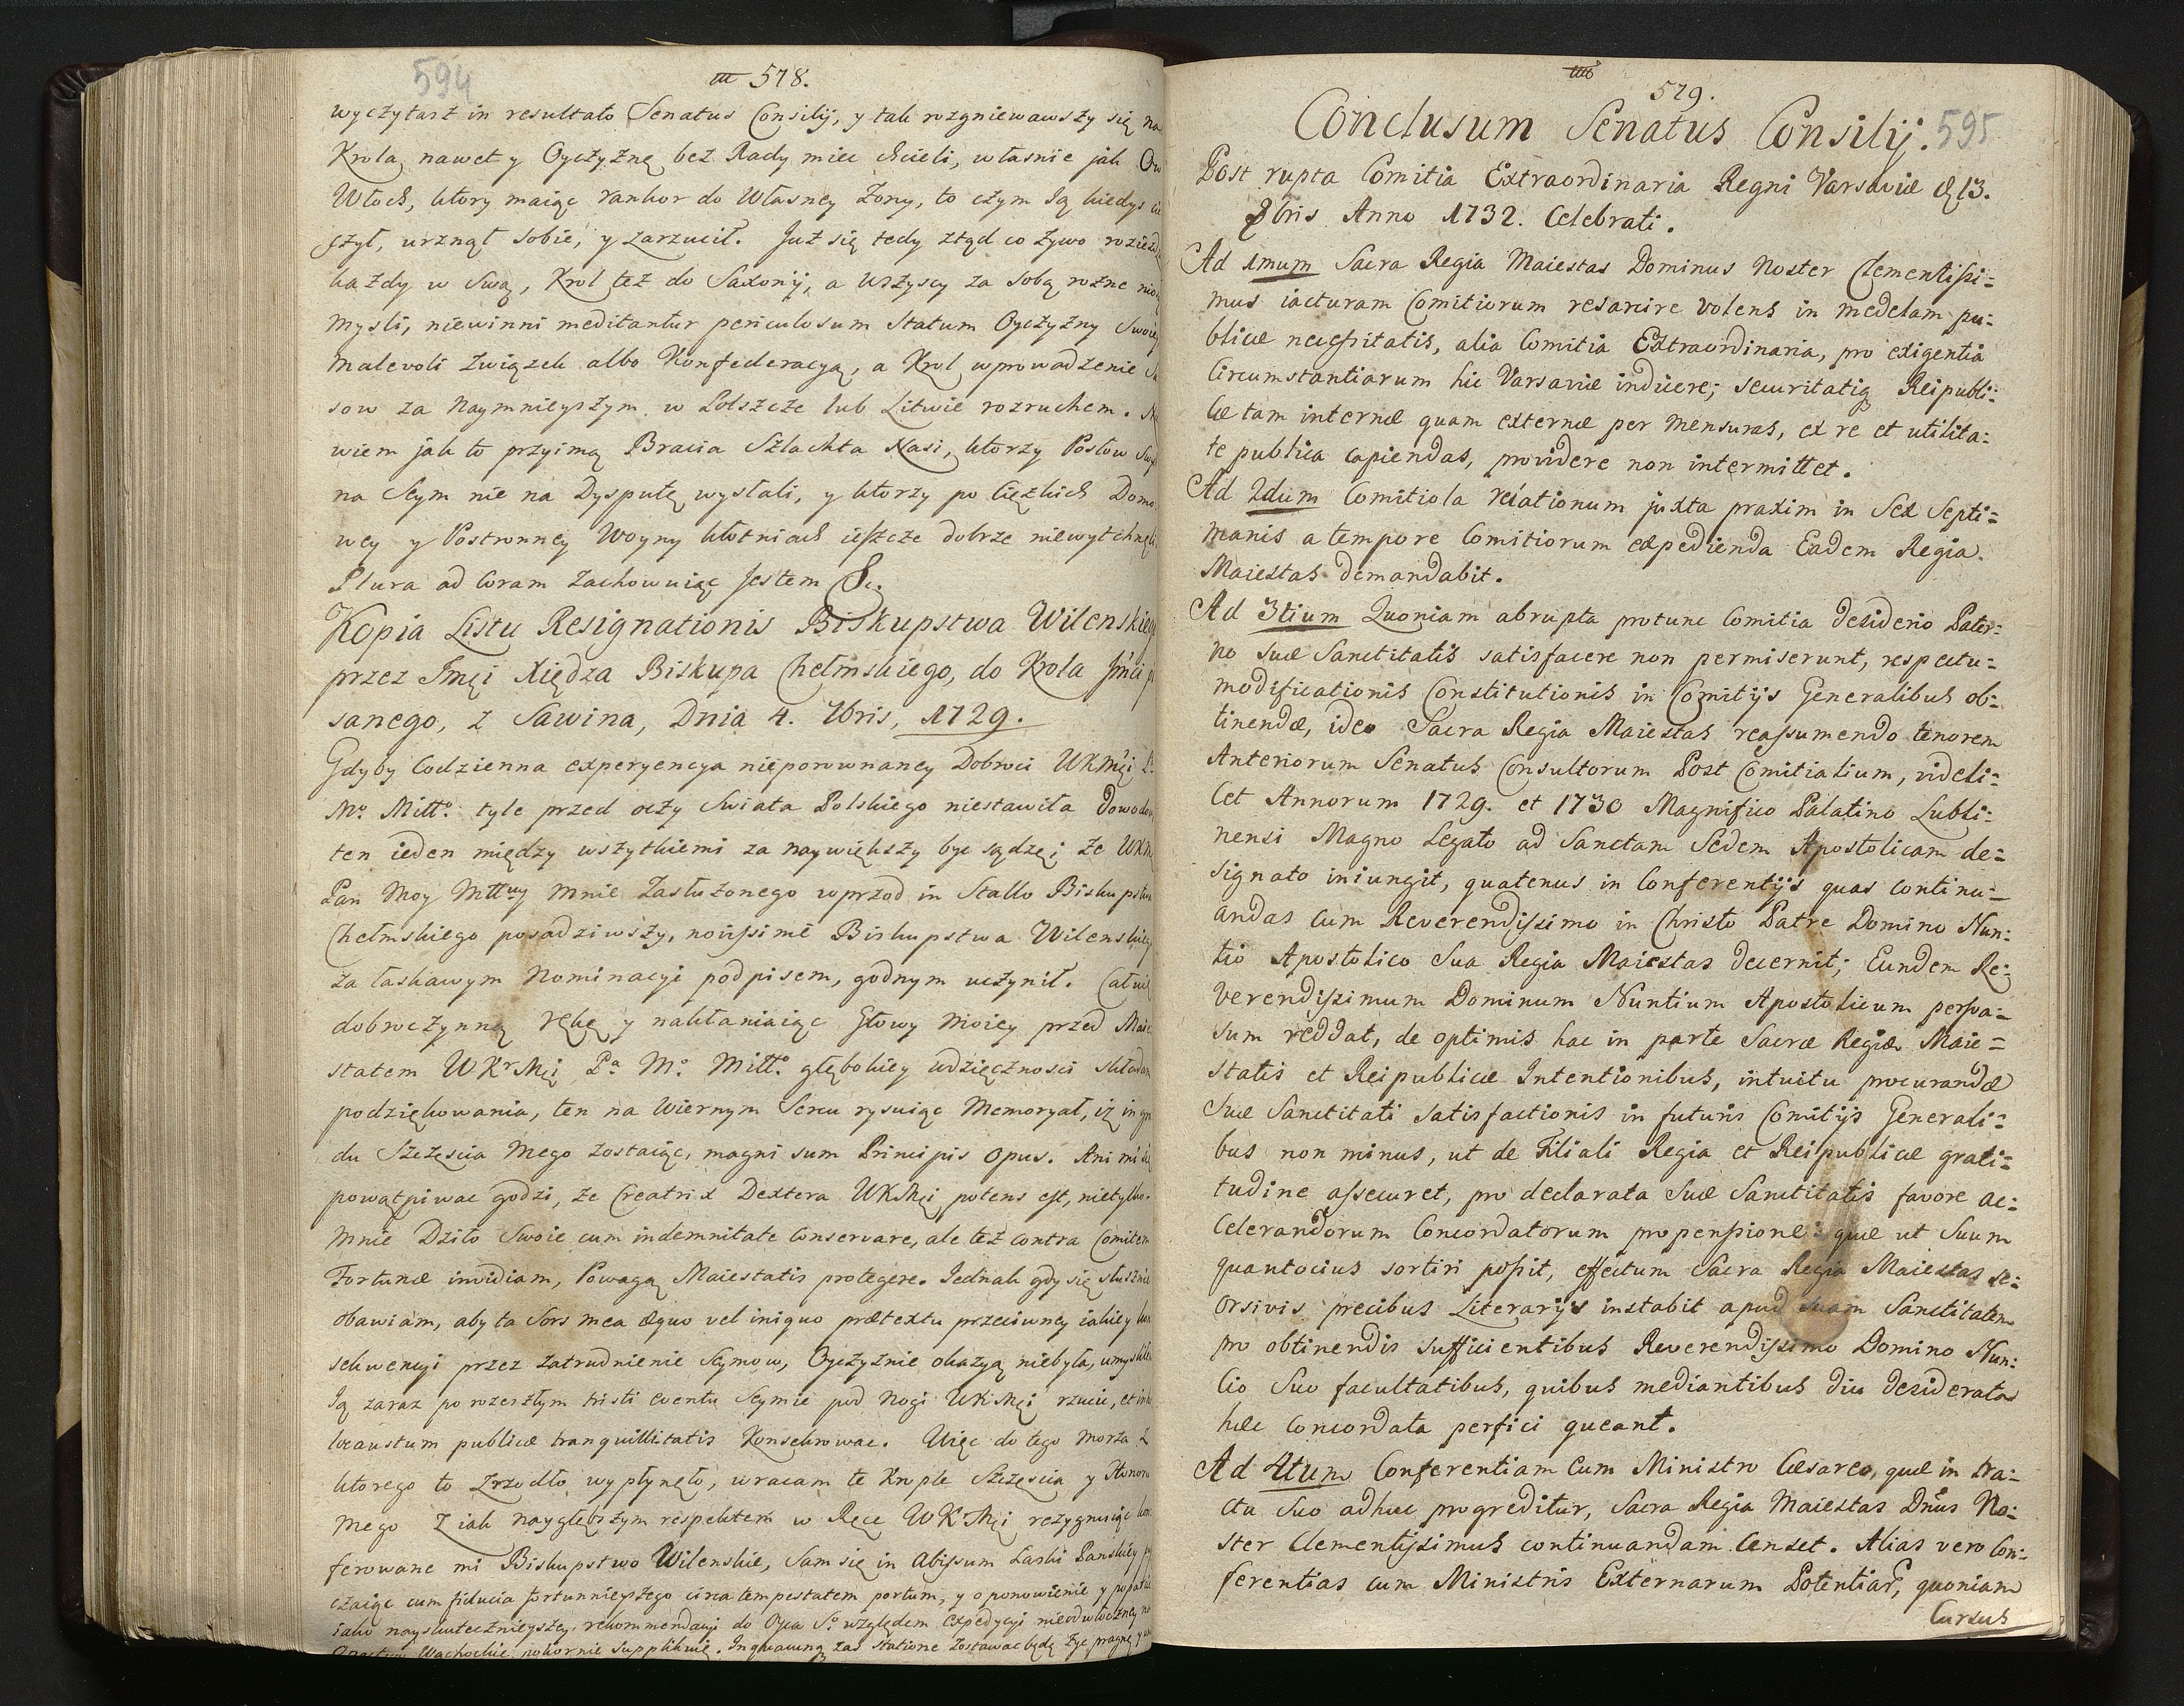 594
578.
wyczytasz in resultato Senatus Consilij, y tak rozgniewawszy się na
Krola, nawet y Oyczyznę bez Rady miec chcieli, własnie jak
Włoch, ktory maiąc rankor do Własney Zony, to czym Ią kiedys
szył, urznął sobie, y zarzucił. Juz się tedy ztąd co zywo
kazdy w Swą, Krol tez do Saxonij, a wszyscy za sobą rozne
mysli, niewinni meditantur periculosum Statum Oyczyzny Swoiey
malevoli Związek albo Konfederacyą, a Krol wprowadzenie
sow za naymnieyszym w Polszcze lub Litwie rozruchem.
wiem jak to przyimą Bracia Szlachta Nasi, ktorzy Posłow
na Seym nie na Dysputę wysłali, y ktorzy po Cięzkich Domo
wey y Postronney Woyny kłotniach ieszcze dobrze niewytchnęli
Plura ad Coram Zachowuiąc Jestem &c.
Kopia Listu Resignationis Biskupstwa Wilenskiego
przez Jmci Xiędza Biskupa Chełmskiego, do Krola Jmci
sanego, z Sawina, Dnia 4. 7bris, 1729.
Gdyby Codzienna experyencya nieporownaney Dobroci WKMci
Mo. Miłło. tyle przed oczy Swiata Polskiego niestawiła dowodow
ten ieden między wszytkiemi za naywiększy byc sądzę; ze
Pan Moy Mttwy mnie Zasłuzonego wprzod in Stallo Biskupstwa
Chełmskiego posadziwszy, novissimè Biskupstwa Wilenskiego
za łaskawym Nominacyi podpisem, godnym uczynił.
dobroczynną rękę y nakłaniaiąc Głowy moiey przed Maie
statem WKrMci Pa. Mo. Miłło. głębokiey wdzięcznosci składam
podziękowania, ten na Wiernym Sercu rysuiąc Memoryał, iz in
du Szczęscia mego zostaiąc, magni sum Principis opus. Ani mi się
powątpiwac godzi, ze Creatrix Dextera WKMci potens est, nietylko
mnie Dziło Swoie cum indemnitate Conservare, ale tez contra Comitem
Fortunæ invidiam, Powagą Maiestatis protegere. Jednak gdy się słusznie
obawiam, aby ta Sors mea æquo vel iniquo prætextu przeciwney iakiey
sekwencyi przez Zatrudnienie Seymow, Oyczyznie okazyą niebyła,
Ią zaraz po rozeszłym tristi eventu Seymie pod Nogi WKMci rzucic,
locaustum publicæ tranquillitatis Konsekrowac. Więc do tego morza z
ktorego to Zrzodło wypłyneło, wracam te Krople Szczęscia y Honoru
mego Z iak nayglębszym respektem w Ręce WKrMci rezygnuiąc
ferowane mi Biskupstwo Wilenskie, Sam się in Abissum Łaski Panskiey
czaiąc cum fiducia fortunnieyszego circa tempestatem portum, y o ponowienie y
iako nayskutecznieyszey rekommendacyi do Oyca So. względem Expedycyi nieodwłoczney
Wachockie pokornie Supplikuię. In quacunq zas Statione Zostawac będę zyc pragnę
579.
595
Conclusum Senatus Consilij.
Post rupta Comitia Extraordinaria Regni Varsaviæ d. 13.
8bris Anno 1732. Celebrati.
Ad 1mum Sacra Regia Maiestas Dominus Noster Clementissi=
mus iacturam Comitiorum resarcire volens in medelam pu=
blicæ necessitatis, alia Comitia Extraordinaria, pro exigentia
Circumstantiarum hic Varsaviæ indicere; securitatiq Reipubli=
cæ tam internæ quam externæ per mensuras, ex re et utilita=
te publica capiendas, providere non intermittet.
Ad 2dum Comitiola relationum juxta praxim in Sex Septi=
manis a tempore Comitiorum expedienda Eadem Regia
Maiestas demandabit.
Ad 3tium Quoniam abrupta protunc Comitia desiderio Pater=
no Suæ Sanctitatis satisfacere non permiserunt, respectu=
modificationis Constitutionis in Comitijs Generalibus ob=
tinendæ, ideo Sacra Regia Maiestas reassumendo tenorem
Anteriorum Senatus Consultorum Post Comitialium, videli=
cet Annorum 1729. et 1730 Magnifico Palatino Lubli=
nensi Magno Legato ad Sanctam Sedem Apostolicam de=
signato iniungit, quatenus in Conferentijs quas continu=
andas cum Reverendissimo in Christo Patre Domino Nun=
tio Apostolico Sua Regia Maiestas decernit; Eundem Re=
verendissimum Dominum Nuntium Apostolicum persva=
sum reddat, de optimis hac in parte Sacræ Regiæ Maie=
statis et Reipublicæ Intentionibus, intuitu procurandæ
Suæ Sanctitati satisfactionis in futuris Comitijs Generali=
bus non minus, ut de Filiali Regia et Reipublicæ grati=
tudine assecuret, pro declarata Suæ Sanctitatis favore ac=
celerandorum Concordatorum propensione: quæ ut Suum
quantocius sortiri possit, effectum Sacra Regia Maiestas se=
orsivis precibus Literarijs instabit apud Suam Sanctitatem
pro obtinendis sufficientibus Reverendissimo Domino Nun=
cio Suo facultatibus, quibus mediantibus diu desiderata
hæc Concordata perfici queant.
Ad 4tum Conferentiam Cum Ministro Cæsareo, quæ in tra=
ctu Suo adhuc progreditur, Sacra Regia Maiestas Dnus No=
ster Clementissimus continuandam Censet. Alias vero Con=
ferentias cum Ministris Externarum Potentiar, quoniam
Cursus